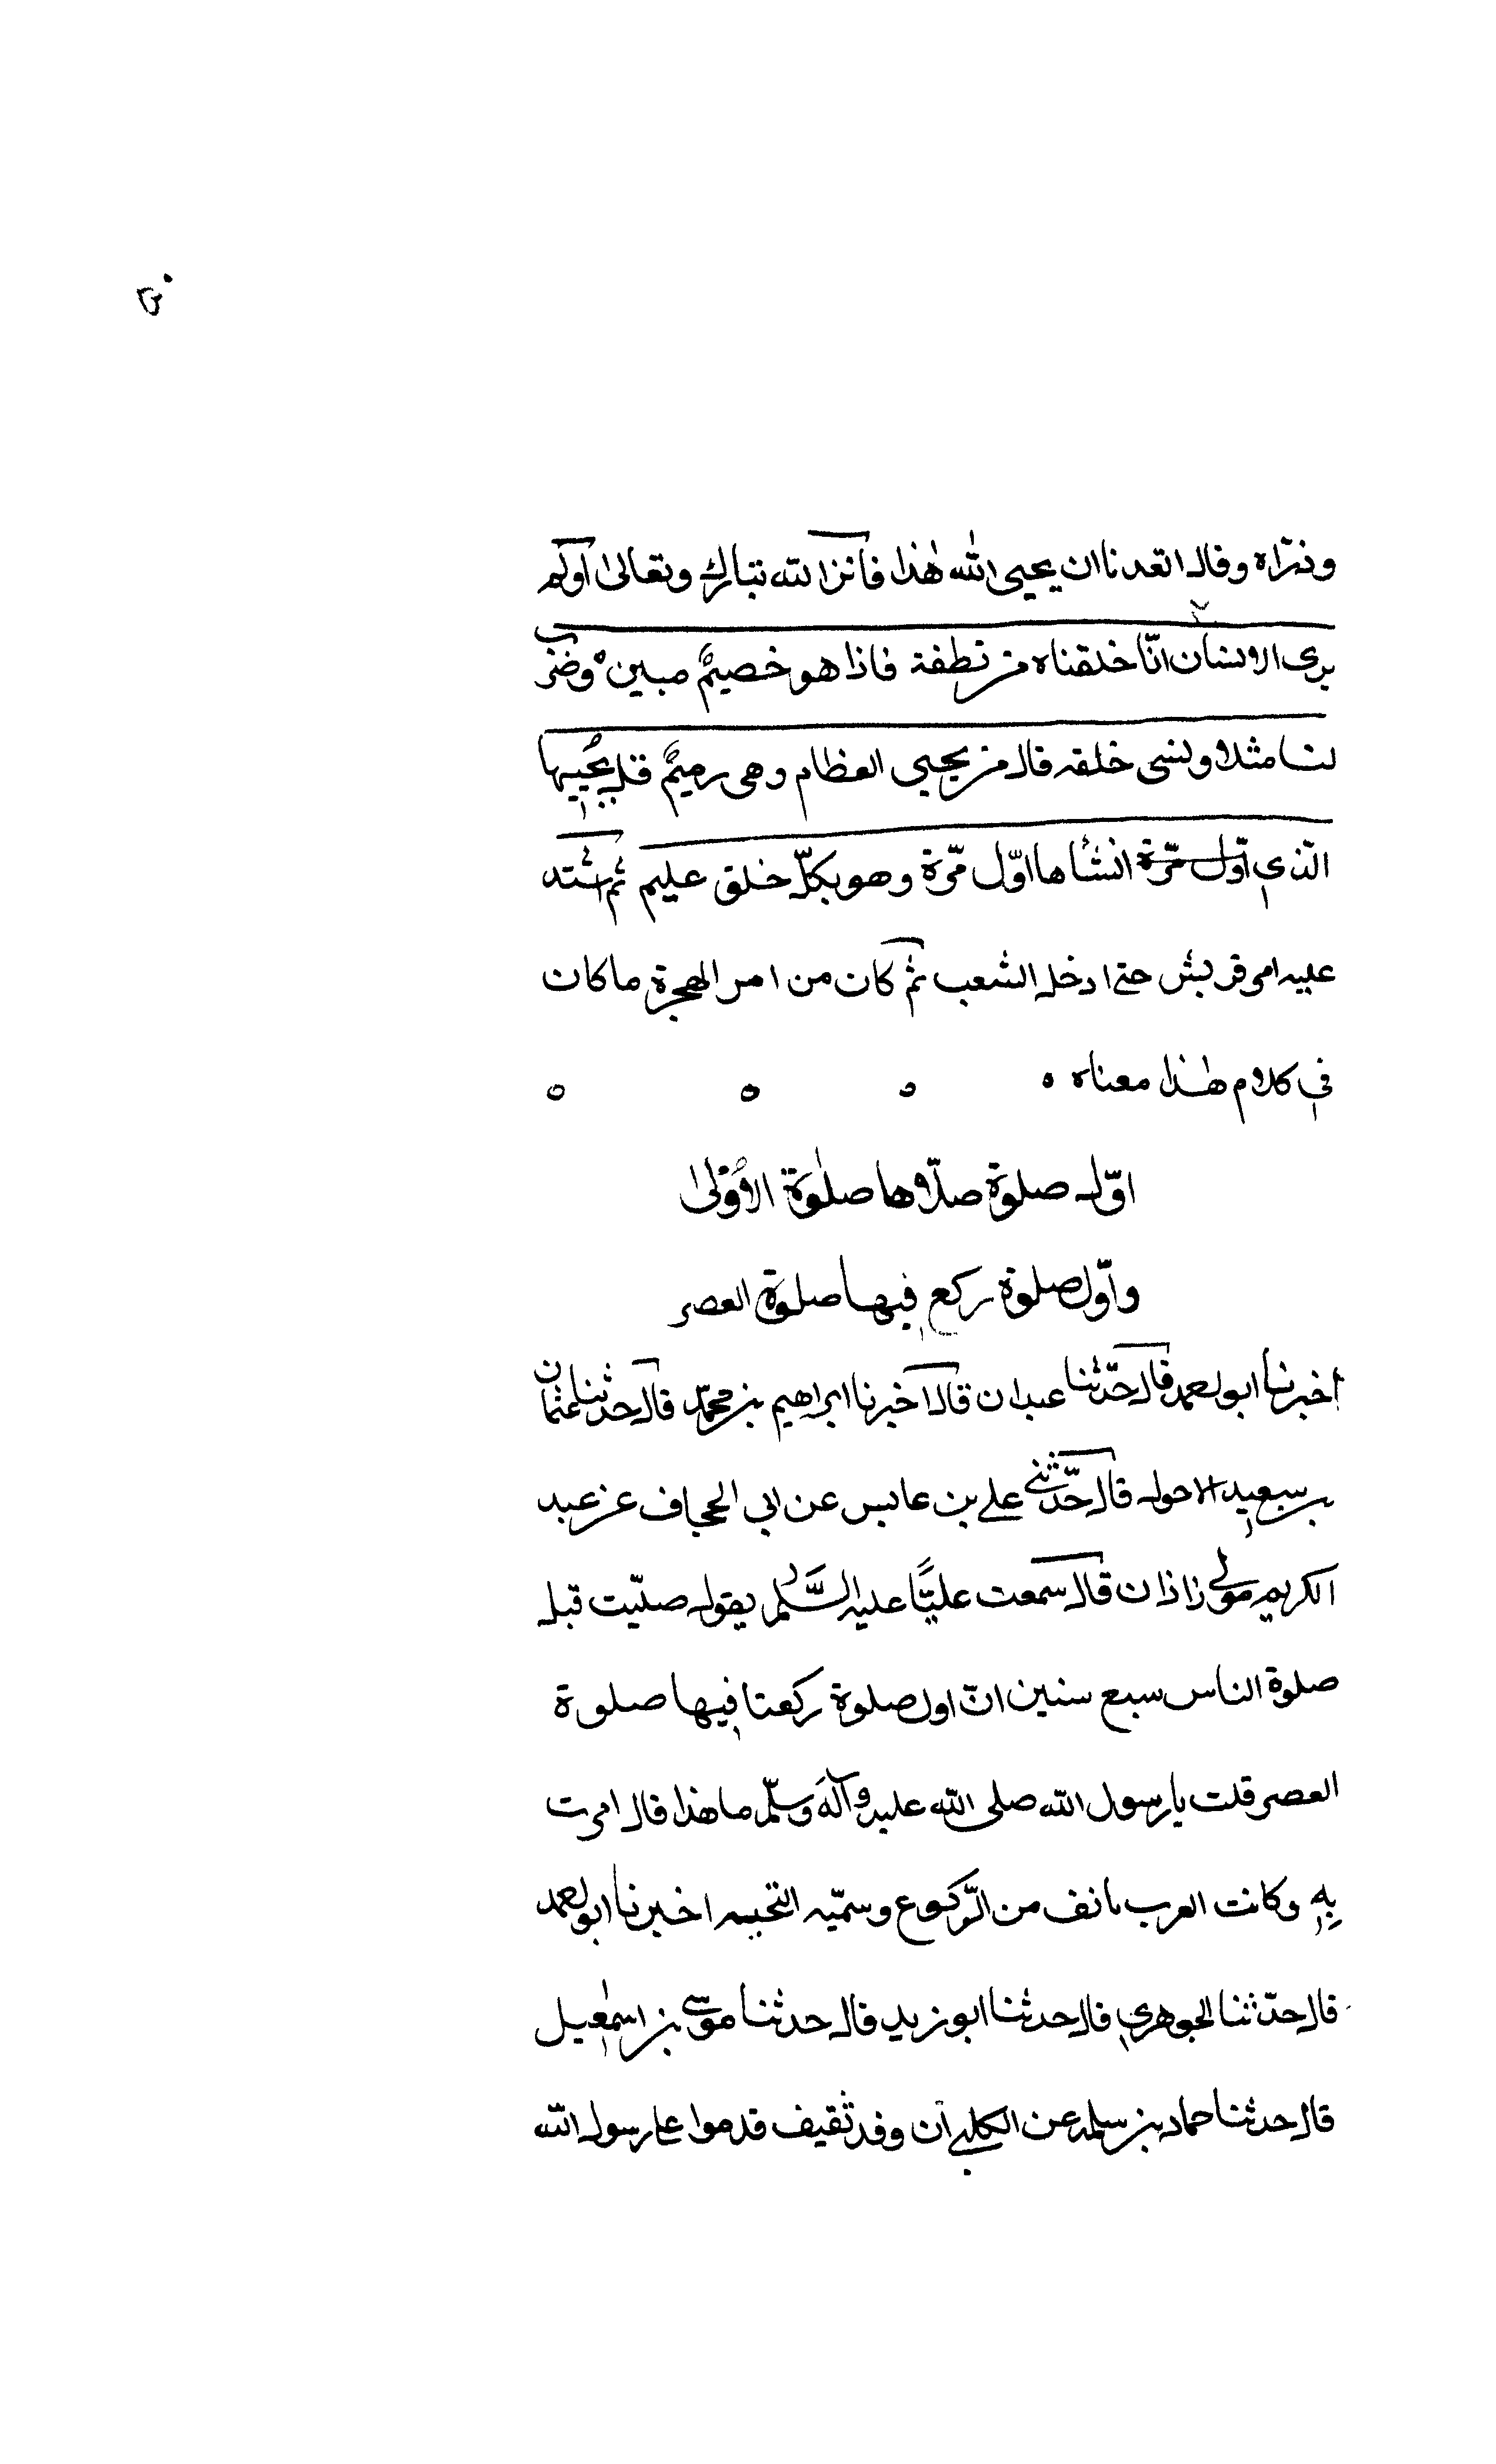 وقال اتعدنا ان يحيى الله هذا فانزل الله تبارك وتعالى اولم
يرى الانسان انّا خلقناه من نطفة فاذا هو خصيمٌ مبين وضرب
لنا مثلا ونسى خلقه قال من يحيى العظام وهى رميمٌ قل يحييها
الّذي اوّل مرّة انشأها اوّل مرّة وهو بكلّ خلق عليم ثم اشتد
عليه امر قريش حتى ادخل الشعب ثم كان من امر الهجرة ما كان
في كلام هذا معناه ه ه ه ه
اوّل صلوة صلّاها صلوة الأولى
واوّل صلوة ركع فيها صلوة العصر
اخبرنا ابو احمد قال حدّثنا عبدان قال اخبرنا ابراهيم بن محمّد قال حدثنا عثمان
بن سعيد الاحول قال حدّثني علي بن عابس عن ابي الحجاف عن عبد
الكريم مولى زاذان قال سمعت عليًّا عليه السَّلم يقول صلّيت قبل
صلوة الناس سبع سنين انّ اول صلوة ركعنا فيها صلوة
العصر قلت يا رسول الله صلى الله عليه وآله وسلّم ما هذا قال امرت
بِه وكانت العرب تانف من الرّكوع وسمّيه التجبيه اخبرنا ابو احمد
قال حدّثنا الجوهري قال حدثنا ابو زيد قال حدثنا موسى بن اسمعيل
قال حدثنا حماد بن سلمه عن الكلبي ان وفد ثقيف قدموا على رسول الله